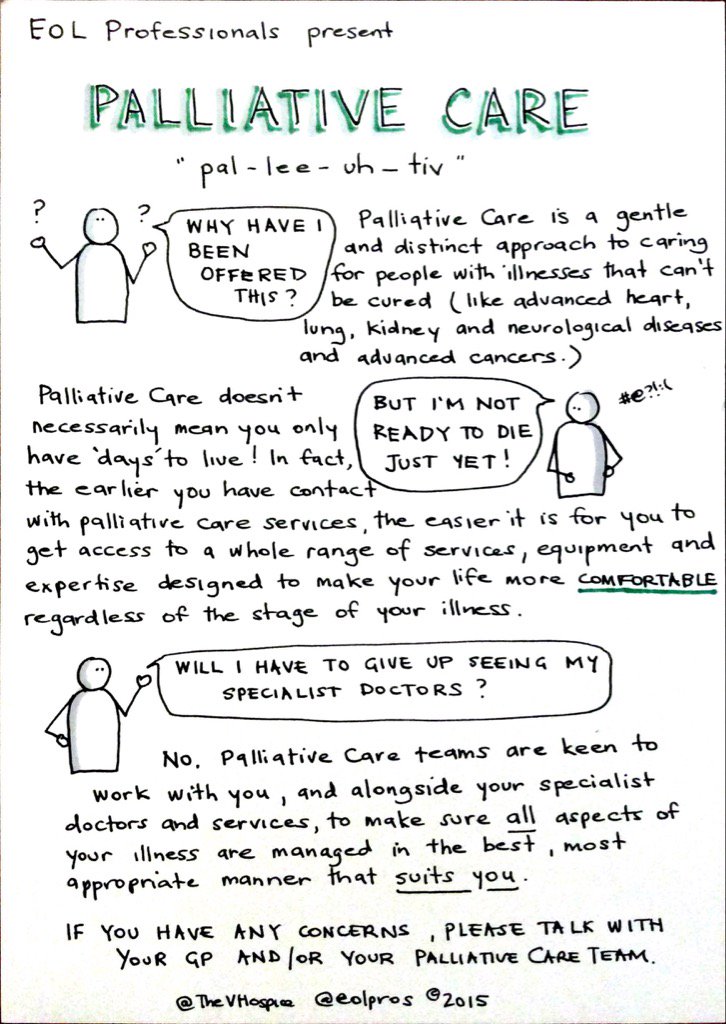 EoL Professionals present
PALLIATIVE CARE
"pal-lee-uh-tiv"
? ?
WHY HAVE I
BEEN
OFFERED
THIS?
Palliative Care is a gentle
and distinct approach to caring
for people with illnesses that can't
be cured (like advanced heart,
lung, kidney and neurological diseases
and advanced cancers.)
BUT I'M NOT
READY TO DIE
JUST YET!
#@?!:(
Palliative Care doesn't
necessarily mean you only
have 'days' to live! In fact,
the earlier you have contact
with palliative care services, the easier it is for you to
get access to a whole range of services, equipment and
expertise designed to make your life more COMFORTABLE
regardless of the stage of your illness.
WILL I HAVE TO GIVE UP SEEING MY
SPECIALIST DOCTORS?
No. Palliative Care teams are keen to
work with you, and alongside your specialist
doctors and services, to make sure all aspects of
your illness are managed in the best, most
appropriate manner that suits you.
IF YOU HAVE ANY CONCERNS, PLEASE TALK WITH
YOUR GP AND/OR YOUR PALLIATIVE CARE TEAM.
@TheVHospice @eolpros ©2015